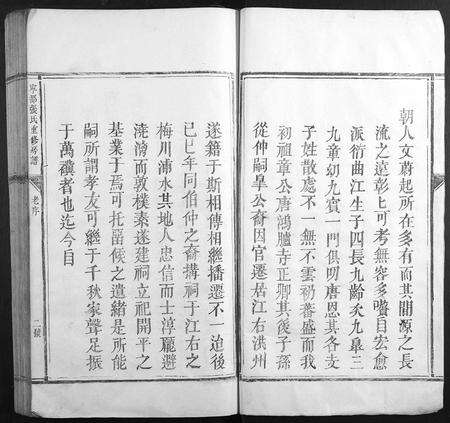 朝人文蔚起所在多有而其開源之長
流之遠彰彰可考無容多贅自宏愈
派衍曲江生子四長九齡次九皐三
九章幼九賓一門俱叨唐恩其各支
子姓散處不一無不雲礽蕃盛而我
初祖章公唐鴻臚寺正卿其後子孫
從仲嗣皐公裔因官遷居江右洪州
遂籍于斯相傳相繼播遷不一迨後
己巳年同伯仲之裔搆祠于江右之
梅川浦水其地人忠信而士淳龐避
澆漓而敦樸素遂建祠立祀開平之
基業于焉可托畱候之遺緒是所能
嗣所謂孝友可繼于千秋家聲足振
于萬禩者也迄今目
寧都張氏重修房譜
老序
二